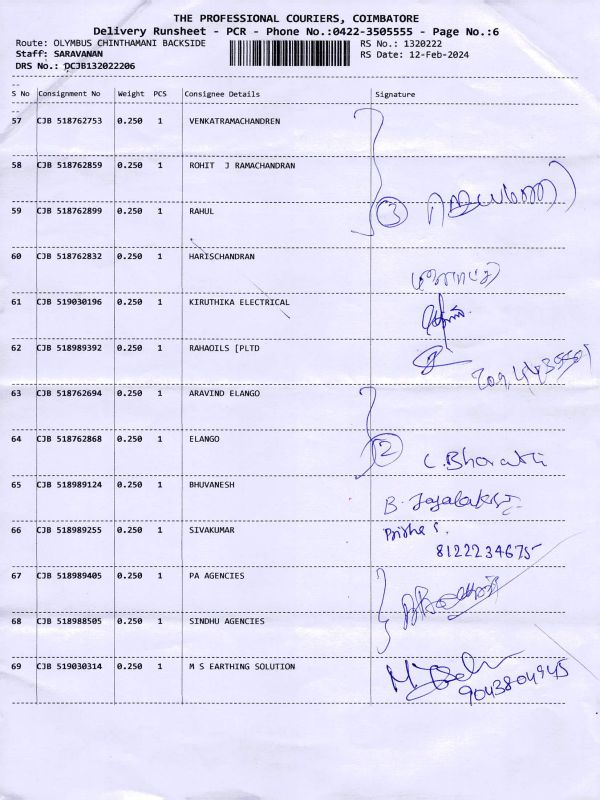 THE PROFESSIONAL COURIERS, COIMBATORE
Delivery Runsheet - PCR - Phone No.:0422-3505555 - Page No.:6
Route: OLYMBUS CHINTHAMANI BACKSIDE RS No.: 1320222
Staff: SARAVANAN RS Date: 12-Feb-2024
DRS No.: DCJB132022206
S No Consignment No Weight PCS Consignee Details Signature
57 CJB 518762753 0.250 1 VENKATRAMACHANDREN
58 CJB 518762859 0.250 1 ROHIT J RAMACHANDRAN
59 CJB 518762899 0.250 1 RAHUL 3
60 CJB 518762832 0.250 1 HARISCHANDRAN
61 CJB 519030196 0.250 1 KIRUTHIKA ELECTRICAL
62 CJB 518989392 0.250 1 RAHAOILS [PLTD
63 CJB 518762694 0.250 1 ARAVIND ELANGO
64 CJB 518762868 0.250 1 ELANGO 2 C.Bharathi
65 CJB 518989124 0.250 1 BHUVANESH B.
66 CJB 518989255 0.250 1 SIVAKUMAR
8122234675
67 CJB 518989405 0.250 1 PA AGENCIES
68 CJB 518988505 0.250 1 SINDHU AGENCIES
69 CJB 519030314 0.250 1 M S EARTHING SOLUTION
9043804945